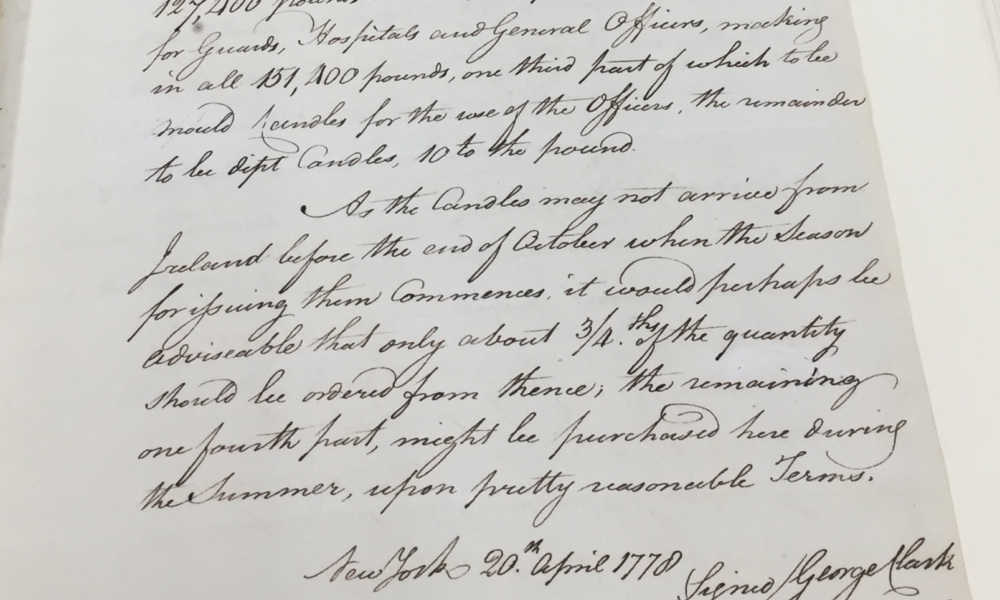 127,400 pounds
for Guards, Hospitals and General Officers, making
in all 151,400 pounds, one third part of which to be
mould Candles for the use of the Officers, the remainder
to be dipt Candles, 10 to the pound.
As the Candles may not arrive from
Ireland before the end of October when the Season
for issuing them Commences, it would perhaps be
adviseable that only about 3/4.ths of the quantity
should be ordered from thence; the remaining
one fourth part, might be purchased here during
the Summer, upon pretty reasonable Terms.
New York 20.th April 1778
Signed George Clark